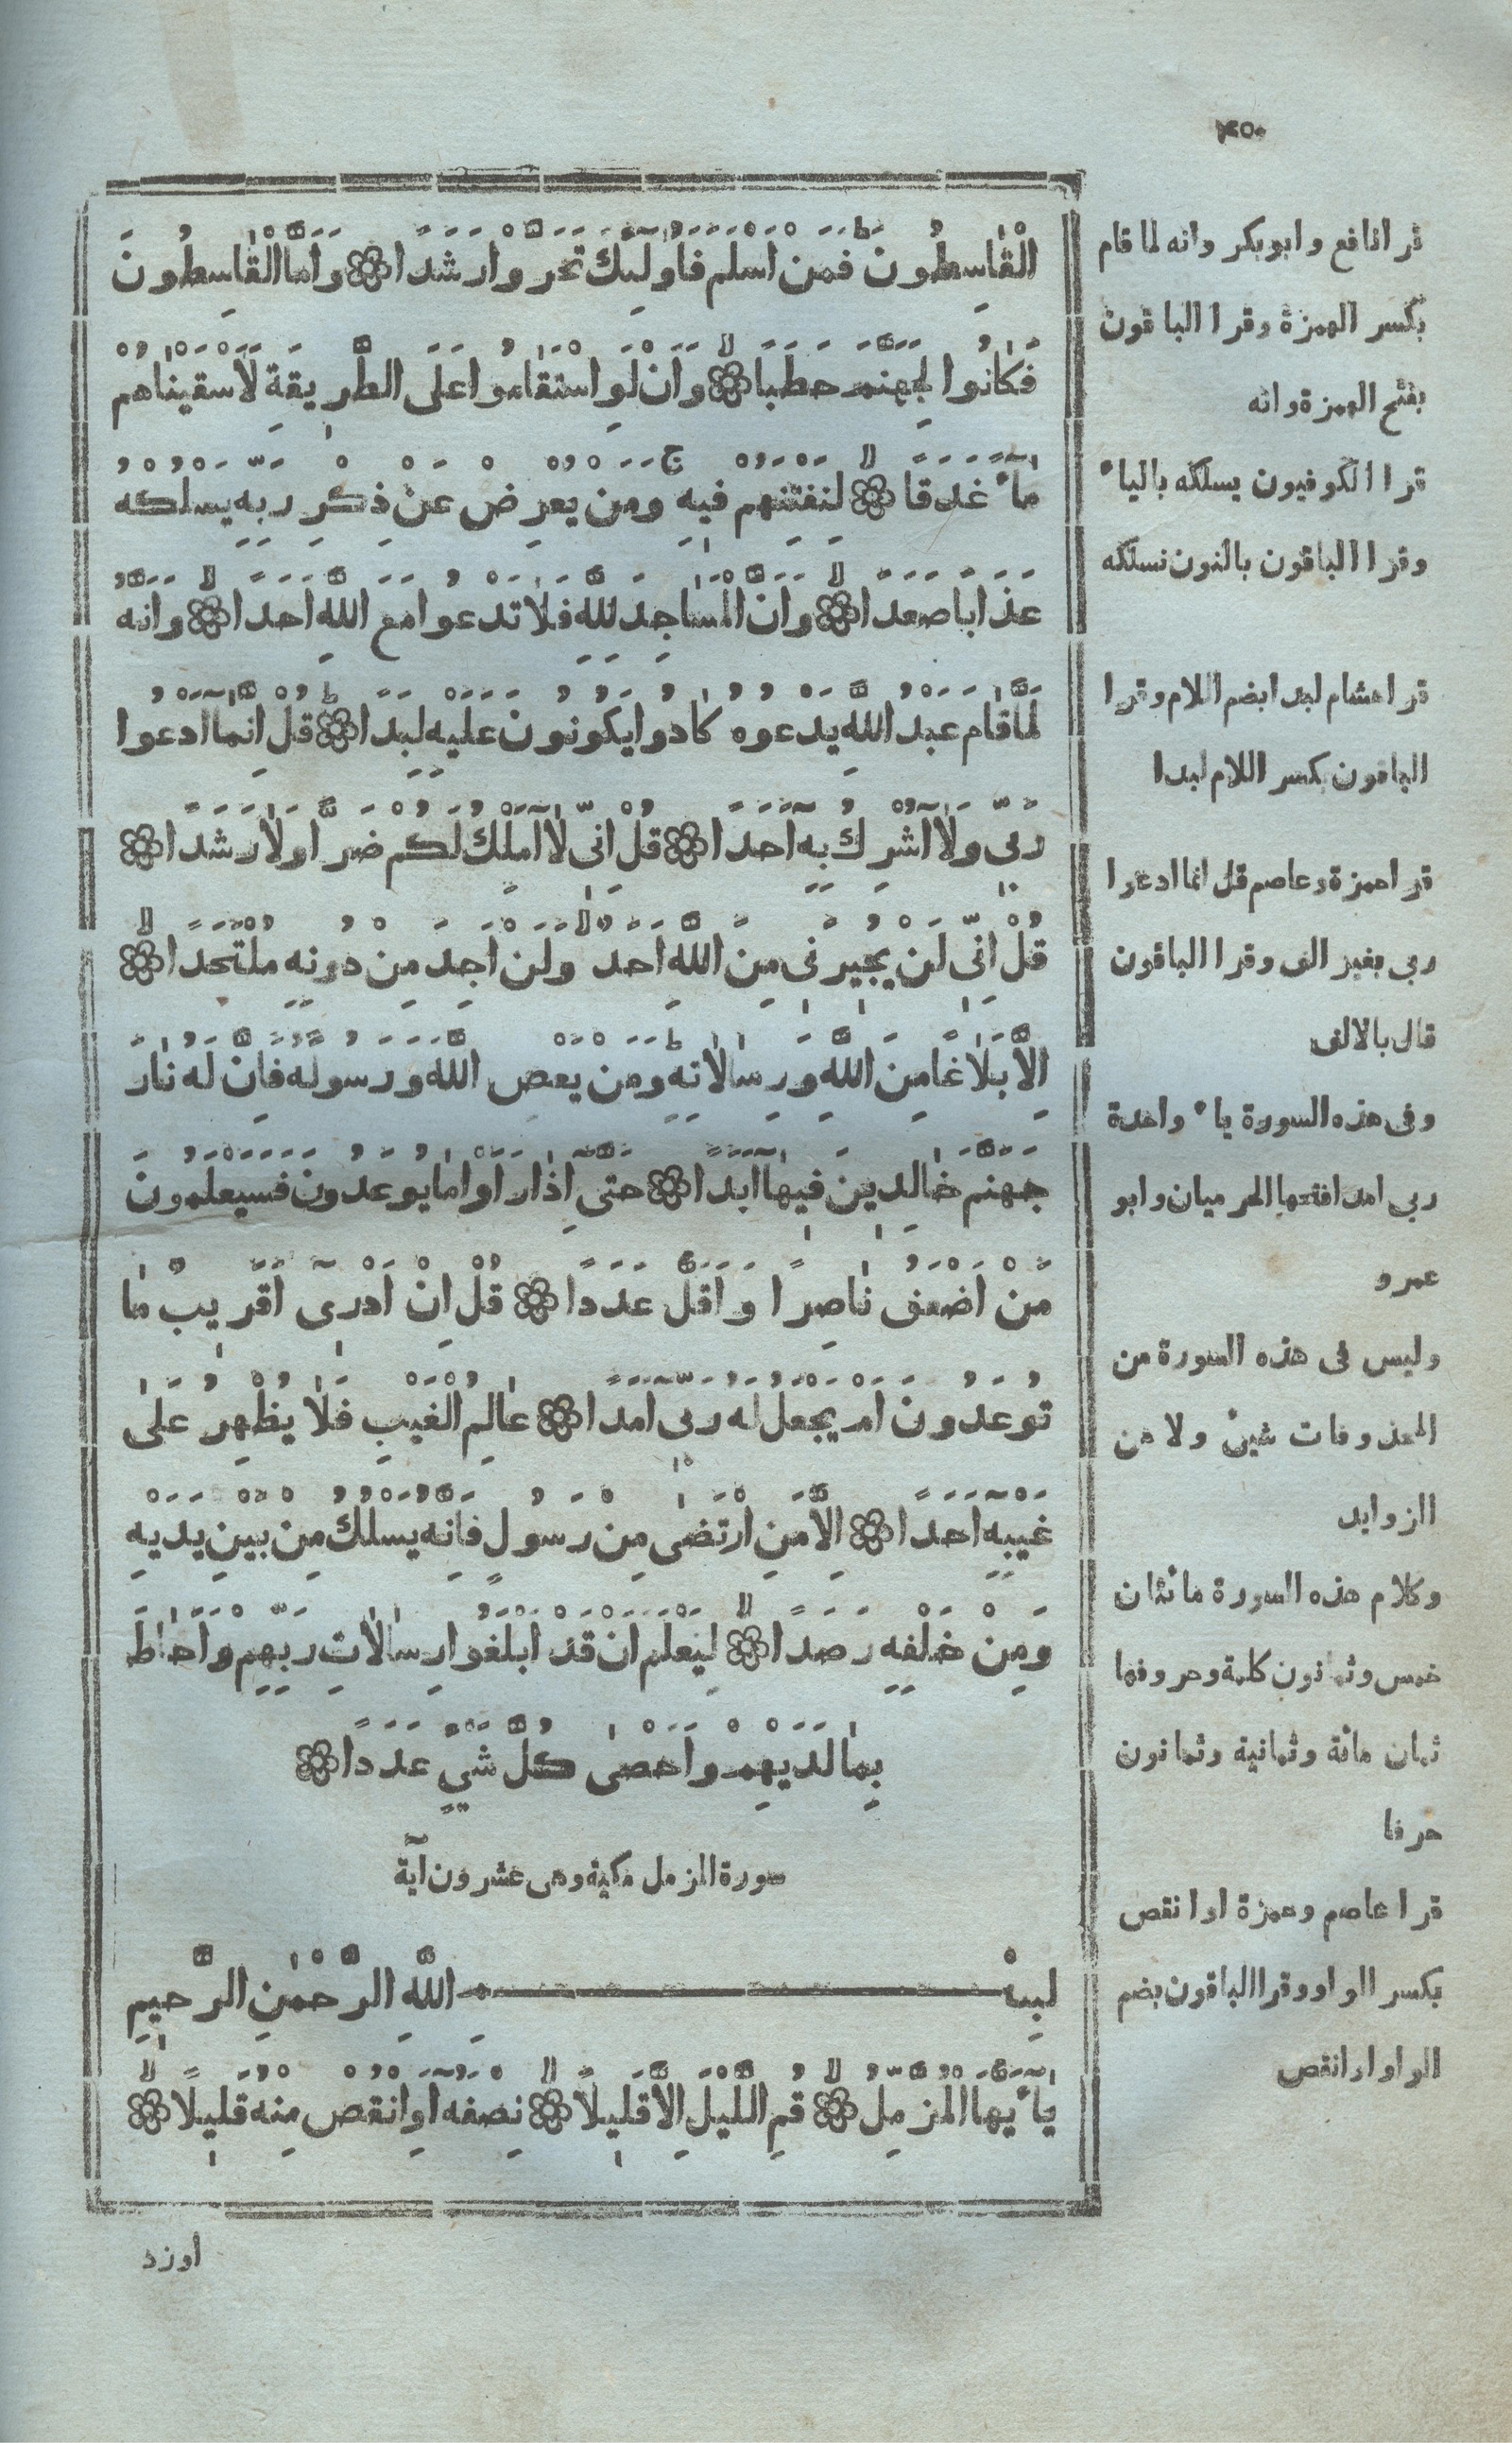 ٤٥٠
الْقَاسِطُونَ فَمَنْ اَسْلَمَ فَاُولٰٓئِكَ تَحَرَّوْا رَشَدًا ۞ وَاَمَّا الْقَاسِطُونَ
فَكَانُوا لِجَهَنَّمَ حَطَبًا ۞ وَاَنْ لَوِ اسْتَقَامُوا عَلَى الطَّرِيقَةِ لَاَسْقَيْنَاهُمْ
مَآءً غَدَقًا ۞ لِنَفْتِنَهُمْ فِيهِ وَمَنْ يُعْرِضْ عَنْ ذِكْرِ رَبِّهِ يَسْلُكْهُ
عَذَابًا صَعَدًا ۞ وَاَنَّ الْمَسَاجِدَ لِلّٰهِ فَلَا تَدْعُوا مَعَ اللّٰهِ اَحَدًا ۞ وَاَنَّهُ
لَمَّا قَامَ عَبْدُ اللّٰهِ يَدْعُوهُ كَادُوا يَكُونُونَ عَلَيْهِ لِبَدًا ۞ قُلْ اِنَّمَآ اَدْعُوا
رَبِّى وَلَآ اُشْرِكُ بِهٖٓ اَحَدًا ۞ قُلْ اِنِّى لَآ اَمْلِكُ لَكُمْ ضَرًّا وَلَا رَشَدًا ۞
قُلْ اِنِّى لَنْ يُجِيرَنِى مِنَ اللّٰهِ اَحَدٌ وَلَنْ اَجِدَ مِنْ دُونِهِ مُلْتَحَدًا ۞
اِلَّا بَلَاغًا مِنَ اللّٰهِ وَرِسَالَاتِهِ وَمَنْ يَعْصِ اللّٰهَ وَرَسُولَهُ فَاِنَّ لَهُ نَارَ
جَهَنَّمَ خَالِدِينَ فِيهَآ اَبَدًا ۞ حَتّٰىٓ اِذَا رَاَوْا مَا يُوعَدُونَ فَسَيَعْلَمُونَ
مَنْ اَضْعَفُ نَاصِرًا وَاَقَلُّ عَدَدًا ۞ قُلْ اِنْ اَدْرِىٓ اَقَرِيبٌ مَا
تُوعَدُونَ اَمْ يَجْعَلُ لَهُ رَبِّىٓ اَمَدًا ۞ عَالِمُ الْغَيْبِ فَلَا يُظْهِرُ عَلٰى
غَيْبِهٖٓ اَحَدًا ۞ اِلَّا مَنِ ارْتَضٰى مِنْ رَسُولٍ فَاِنَّهُ يَسْلُكُ مِنْ بَيْنِ يَدَيْهِ
وَمِنْ خَلْفِهِ رَصَدًا ۞ لِيَعْلَمَ اَنْ قَدْ اَبْلَغُوا رِسَالَاتِ رَبِّهِمْ وَاَحَاطَ
بِمَا لَدَيْهِمْ وَاَحْصٰى كُلَّ شَيْءٍ عَدَدًا ۞
سورة المزمل مكية وهى عشرون آية
بِسْمِ اللّٰهِ الرَّحْمٰنِ الرَّحِيمِ
يَآ ءَيُّهَا الْمُزَّمِّلُ ۞ قُمِ اللَّيْلَ اِلَّا قَلِيلًا ۞ نِصْفَهُٓ اَوِ انْقُصْ مِنْهُ قَلِيلًا ۞
اوزد
قرا نافع وابوبكر وانه لما قام
بكسر الهمزة وقرا الباقون
بفتح الهمزة وانه
قرا الكوفيون يسلكه بالياء
وقرا الباقون بالنون نسلكه
قرا هشام لبدا بضم اللام وقرا
الباقون بكسر اللام لبدا
قرا حمزة وعاصم قل انما ادعوا
ربى بغير الف وقرا الباقون
قال بالالف
وفى هذه السورة ياء واحدة
ربى امدا فتحها الحرميان وابو
عمرو
وليس فى هذه السورة من
المحذوفات شىء ولا من
الزوايد
وكلام هذه السورة مائتان
خمس وثمانون كلمة وحروفها
ثمان مائة وثمانية وثمانون
حرفا
قرا عاصم وحمزة او انقص
بكسر الواو وقرا الباقون بضم
الواو او انقص